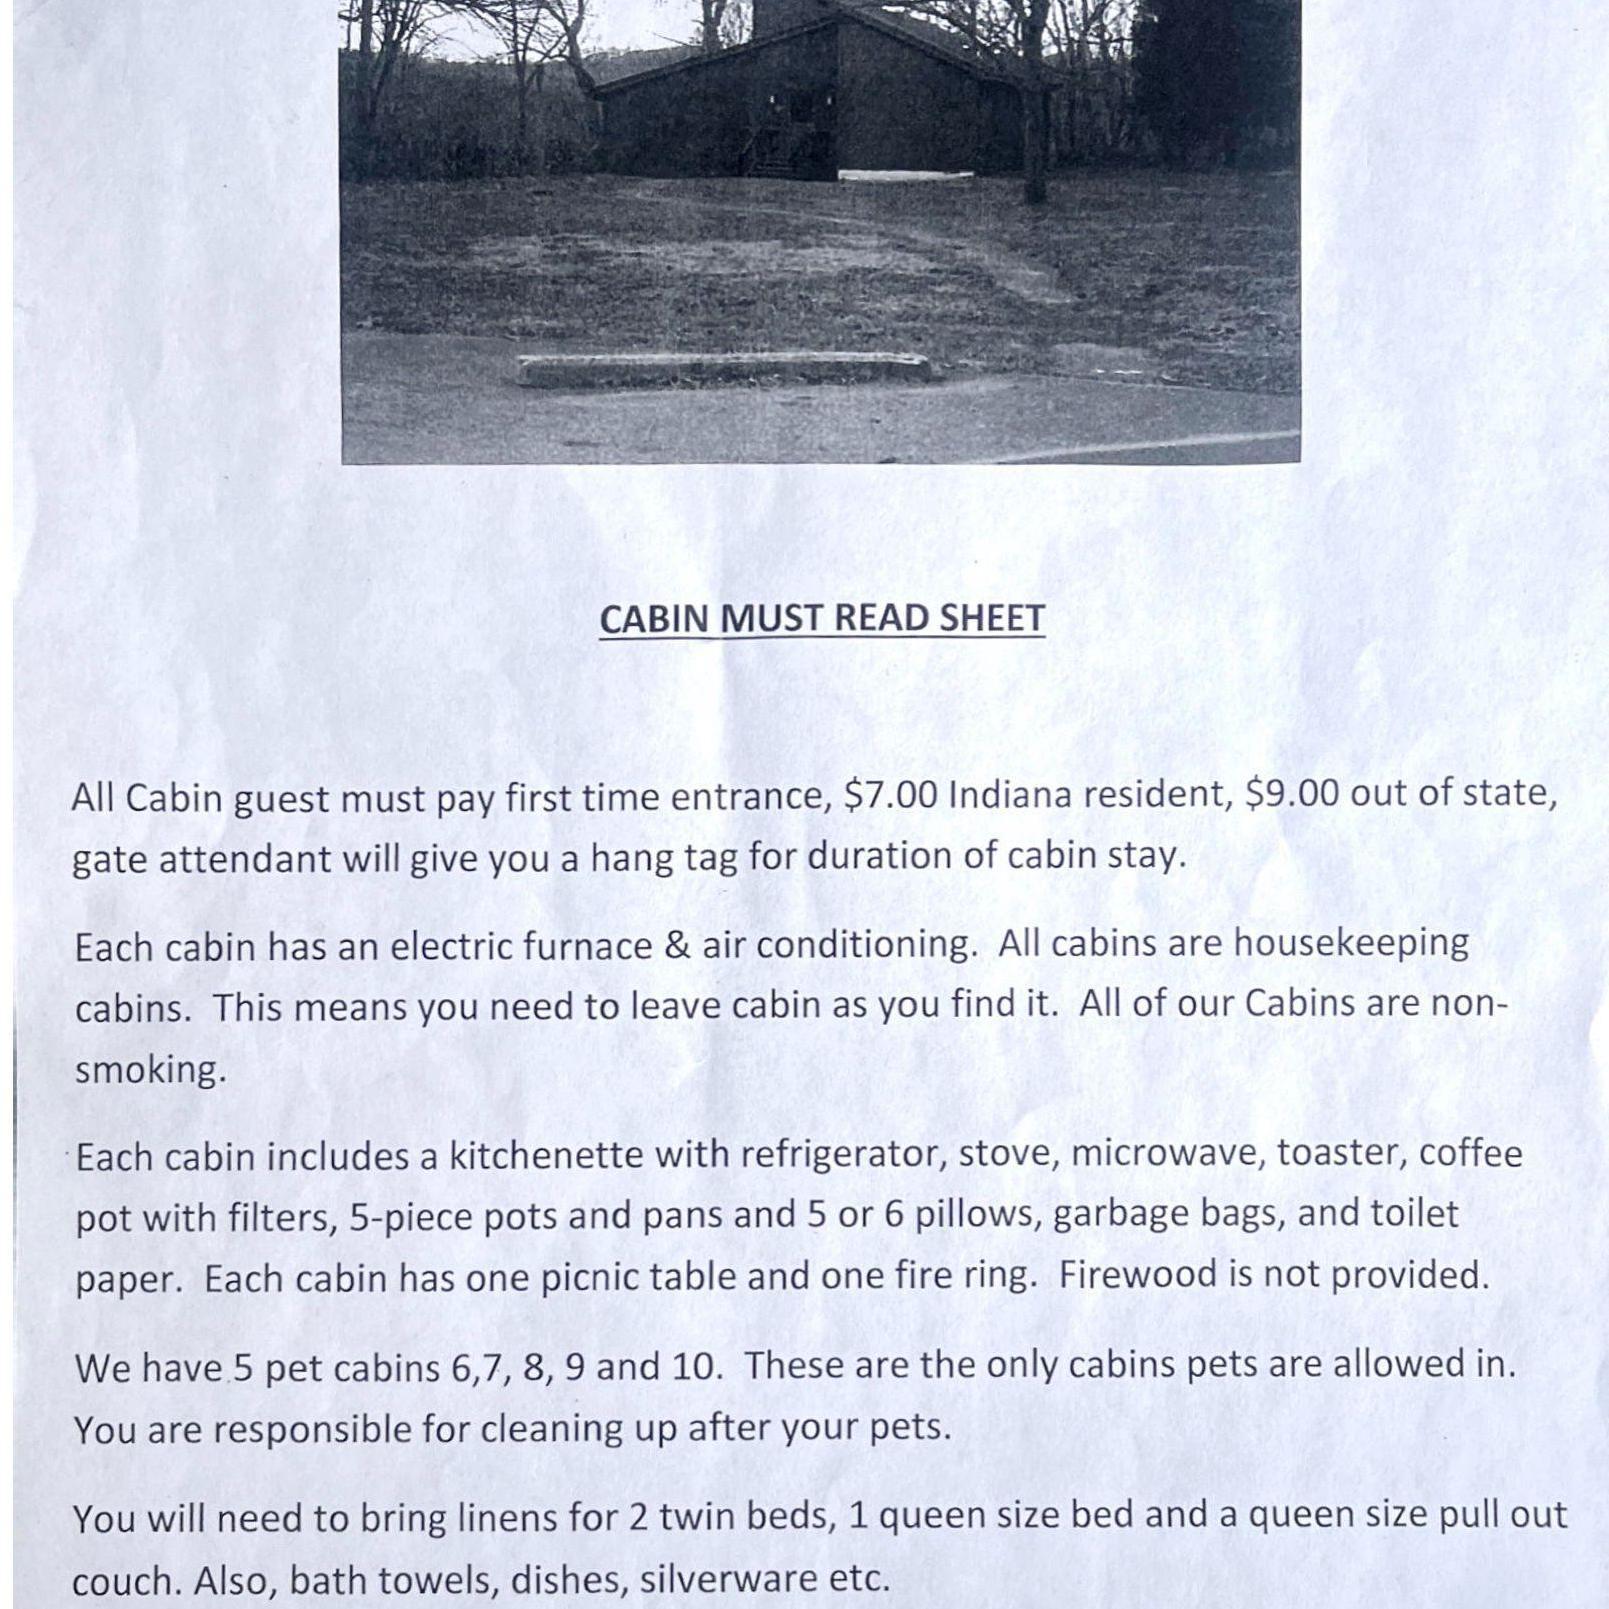 CABIN MUST READ SHEET
All Cabin guest must pay first time entrance, $7.00 Indiana resident, $9.00 out of state,
gate attendant will give you a hang tag for duration of cabin stay.
Each cabin has an electric furnace & air conditioning.  All cabins are housekeeping
cabins.  This means you need to leave cabin as you find it.  All of our Cabins are non-
smoking.
Each cabin includes a kitchenette with refrigerator, stove, microwave, toaster, coffee
pot with filters, 5-piece pots and pans and 5 or 6 pillows, garbage bags, and toilet
paper.  Each cabin has one picnic table and one fire ring.  Firewood is not provided.
We have 5 pet cabins 6,7, 8, 9 and 10.  These are the only cabins pets are allowed in.
You are responsible for cleaning up after your pets.
You will need to bring linens for 2 twin beds, 1 queen size bed and a queen size pull out
couch. Also, bath towels, dishes, silverware etc.